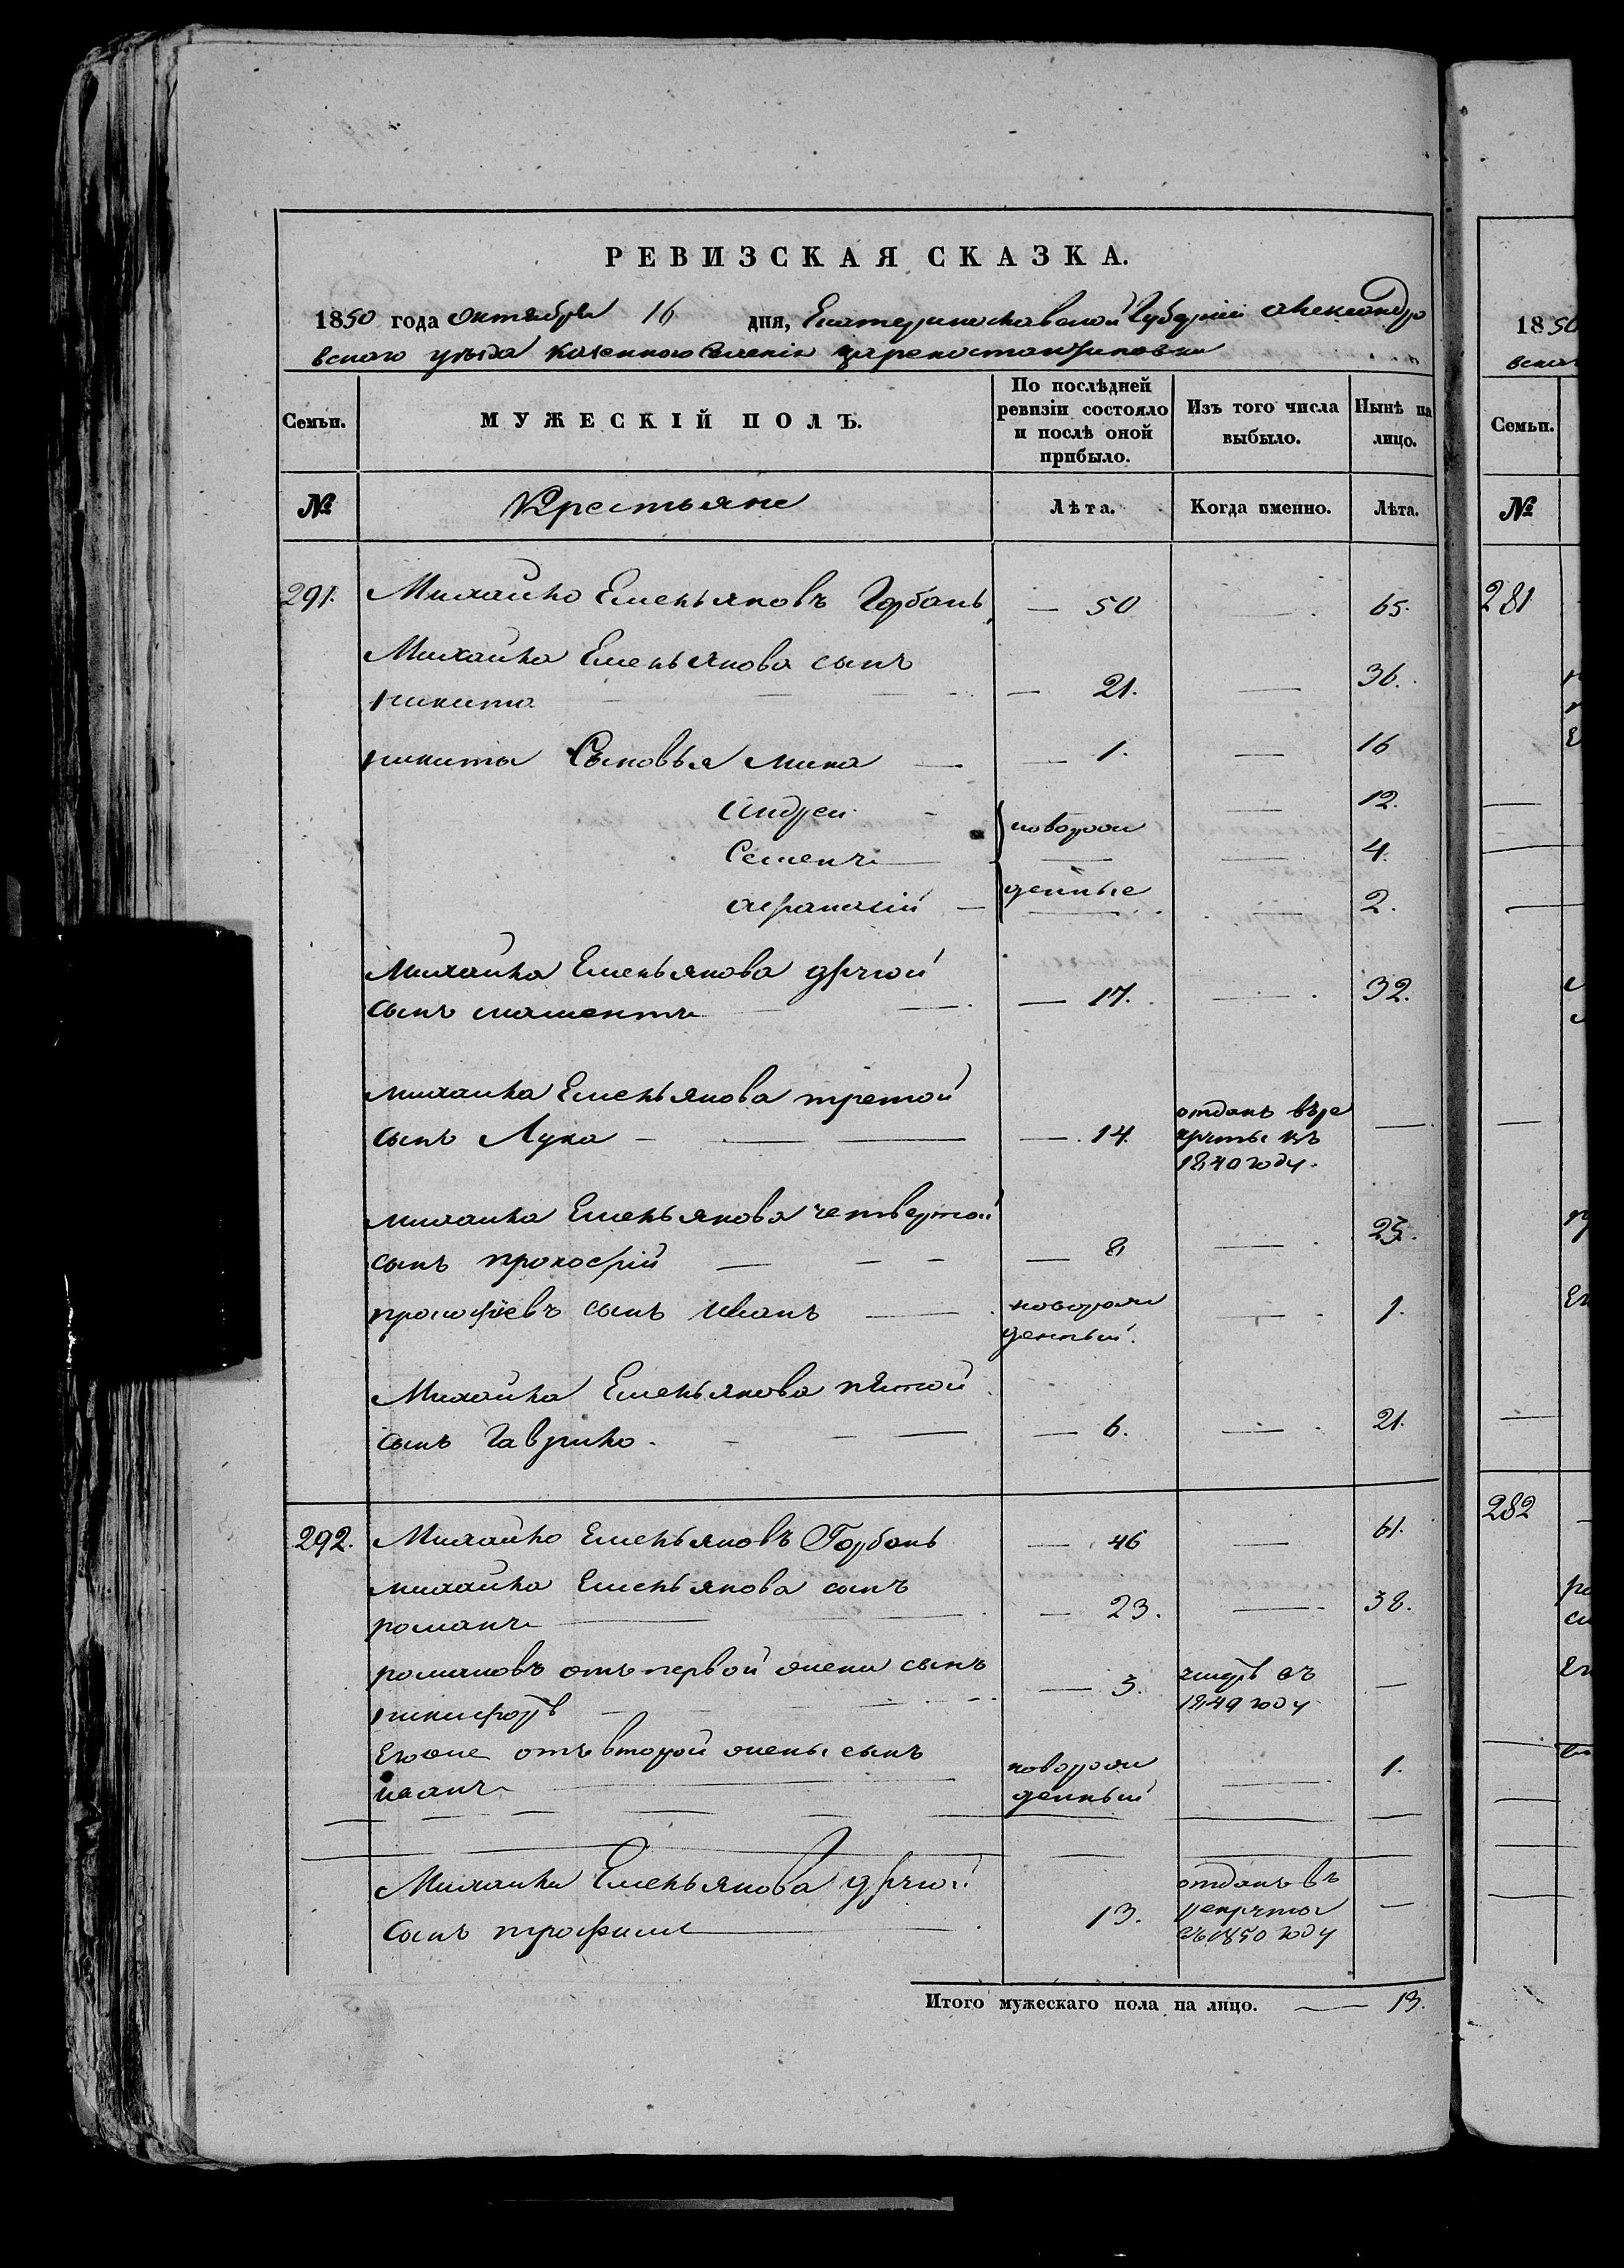 РЕВИЗСКАЯ СКАЗКА.
1850 года Октября 16 дня, Екатеринославской Губернии Александро
вского уезда казенного Селения Цареконстантиновки
Семьи. МУЖЕСКІЙ ПОЛЪ. По послѣдней ревизіи состояло и послѣ оной прибыло. Изъ того числа выбыло. Нынѣ на лицо.
№ Крестьяне Лѣта. Когда именно. Лѣта.
291. Михайло Емельяновъ Горбань — 50 — 65.
Михайла Емельянова сынъ
никита — 21. — 36.
никиты Сыновья мина — 1. — 16
Андрей новорож — 12.
Семенъ — 4.
афанасий денные — 2.
Михайла Емельянова другой
сынъ — 17. — 32.
михайла Емельянова третой
сынъ Лука — 14. отданъ въ ре
круты въ
1840 году. —
михайла Емельянова четвертой
сынъ прокофій — 8 — 23.
прокофіевъ сынъ иванъ — новорож
денный. — 1.
Михайла Емельянова пятой
сынъ Гаврило. — 6. — 21.
292. Михайло Емельяновъ Горбань — 46 — 61.
михайла Емельянова сынъ
романъ — 23. — 38.
романовъ отъ первой жены сынъ
никифоръ — 3. умеръ въ
1849 году —
Его же отъ второй жены сынъ
иванъ — новорож
денный — 1.
Михайла Емельянова другой
сынъ трофим — 13. отданъ въ
рекруты
въ 1850 году —
Итого мужескаго пола на лицо. — 13.
1850
Семьи.
№
281
282